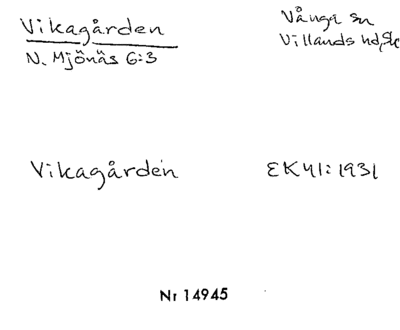 Vikagården
N. Mjönäs 6:3
Vånga sn
Villands hd, Sk
Vikagården
EK 41:1931
Nr 14945